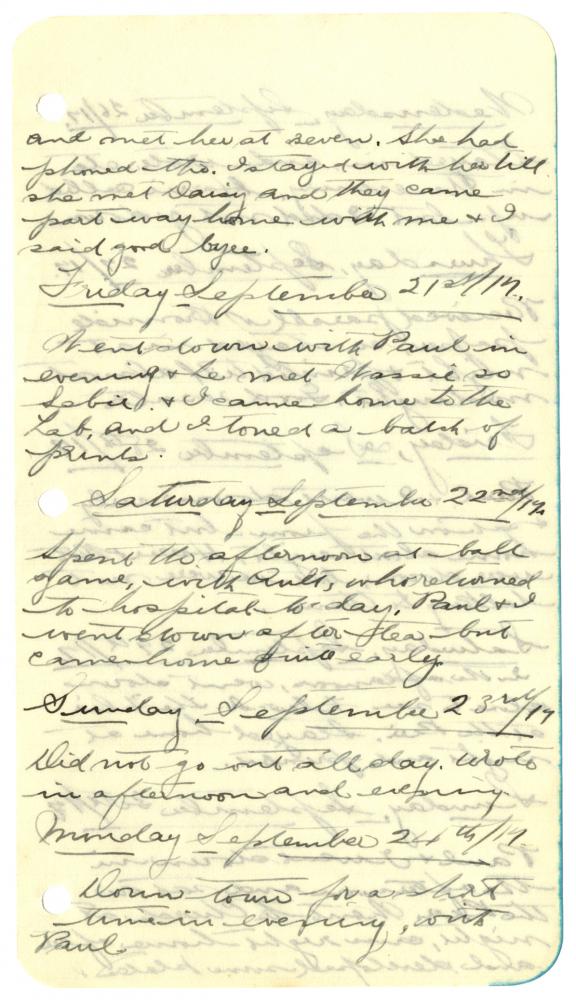 and met her at seven. She had
phoned tho. I stayed with her till
she met Daisy and they came
part way home with me & I
said good byee.
Friday September 21st/17.
Went down with Paul in
evening & he met Wassie so
Sebie & I came home to the
Lab, and I toned a batch of
prints.
Saturday September 22nd/17.
Spent the afternoon at ball
game, with Ault, who returned
to hospital to-day. Paul & I
went down after tea but
came home quite early.
Sunday September 23rd/17
Did not go out all day. Wrote
in afternoon and evening
Monday September 24th/17.
Down town for a short
time in evening, with
Paul